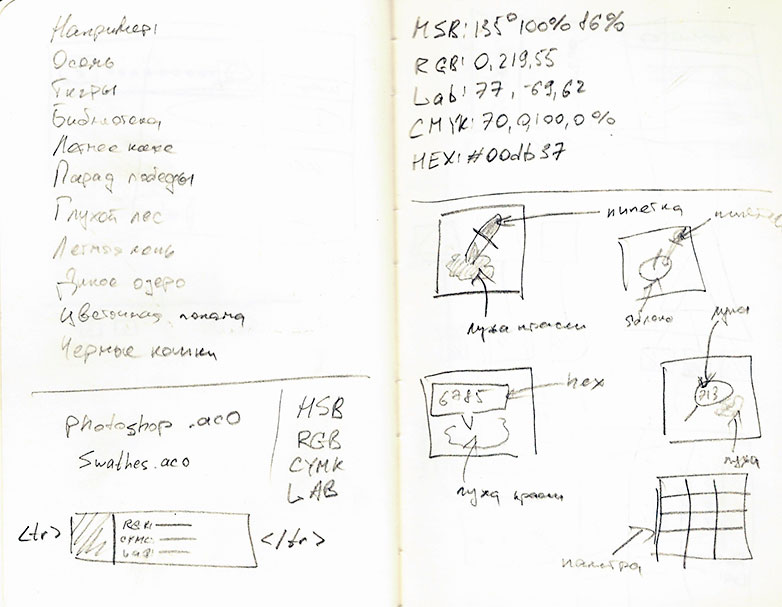 Например:
Осень
Тигры
Библиотека
Летнее кафе
Парад победы
Глухой лес
Летняя ночь
Дикое озеро
Цветочная поляна
Черные кошки
photoshop .aco
Swathes.aco
HSB
RGB
CYMK
LAB
<tr>
RGB:
CYMK:
LAB:
</tr>
HSB: 135° 100% 86%
RGB: 0, 219, 55
Lab: 77, -69, 62
CMYK: 70, 0, 100, 0%
HEX: #00db37
пипетка
лужа краски
яблоко
6785
hex
лужа краски
лупа
713
лужа
палитра